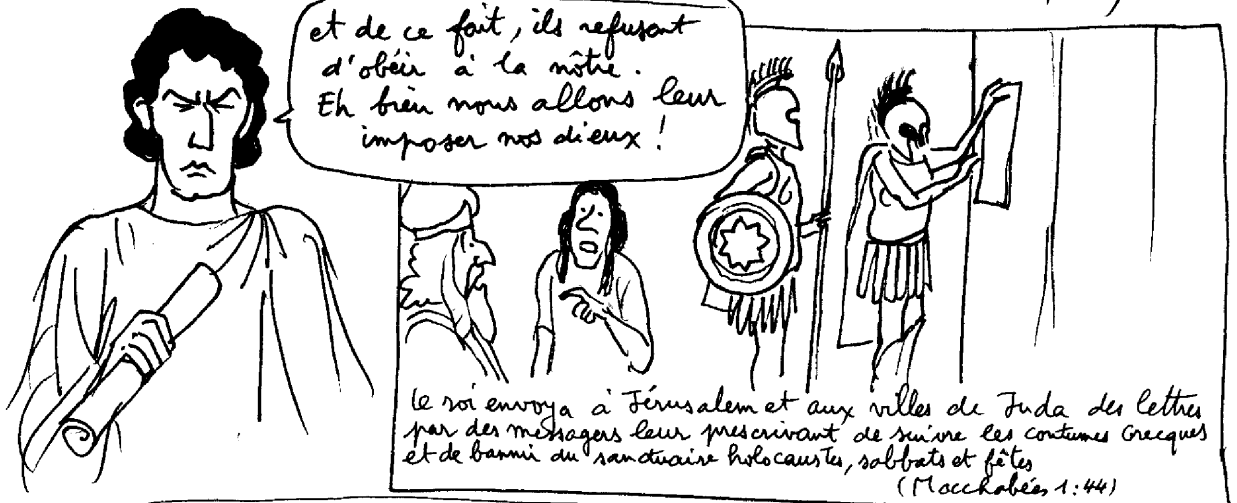 et de ce fait, ils refusent
d'obéir à la nôtre.
Eh bien nous allons leur
imposer nos dieux !
le roi envoya à Jérusalem et aux villes de Juda des lettres
par des messagers leur prescrivant de suivre les coutumes Grecques
et de bannir du sanctuaire holocaustes, sabbats et fêtes
(Macchabées 1:44)